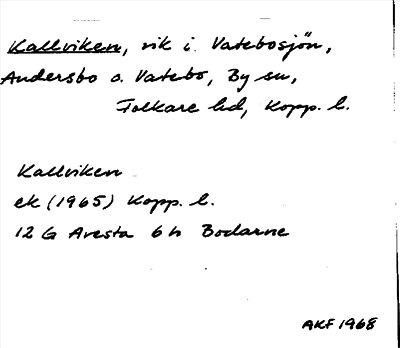 Kallviken, vik i Vatebosjön,
Andersbo o. Vatebo, By sn,
Folkare hd, Kopp. l.
Kallviken
ek (1965) Kopp. l.
12 G Avesta 6 h Bodarne
AKF 1968